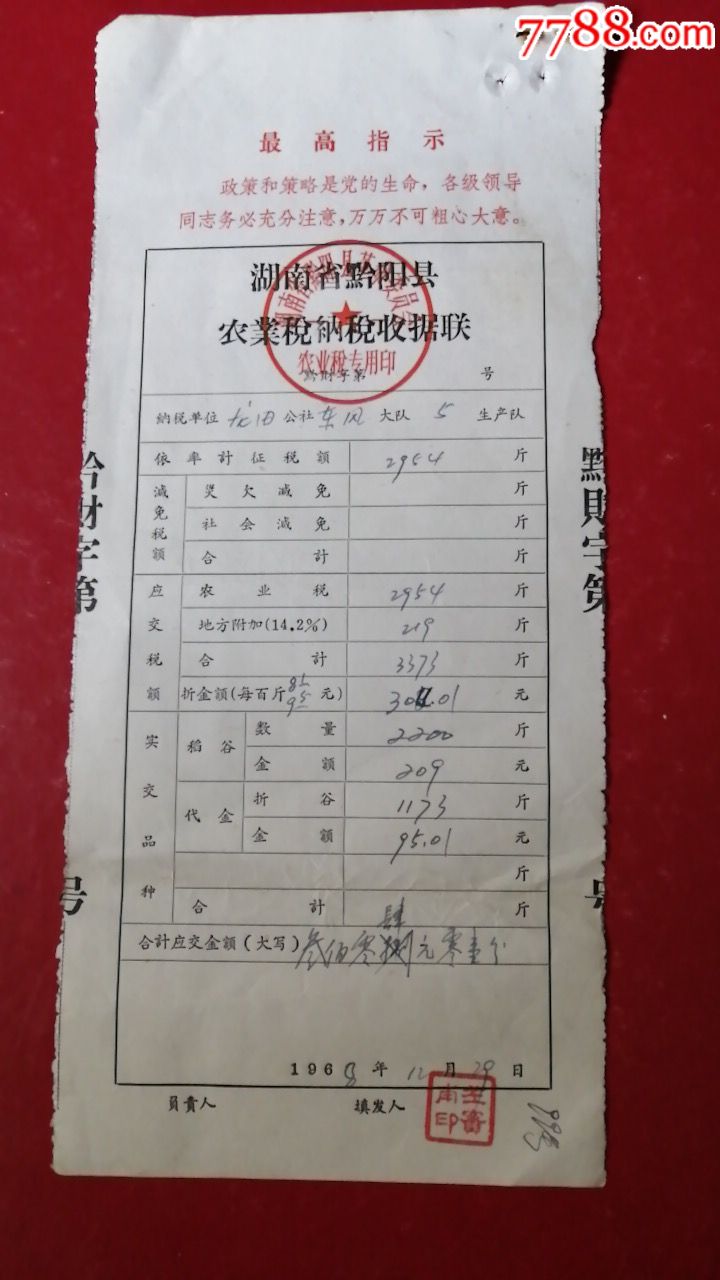 7788.com
最高指示
政策和策略是党的生命，各级领导
同志务必充分注意，万万不可粗心大意。
湖南省黔阳县
农業稅納稅收据联
农业税专用印
黔財字第 号
納税单位 龙田 公社 东风 大队 5 生产队
依率計征税額 2954 斤
減免税額 災欠減免 斤
社会減免 斤
合計 斤
应交税額 农业税 2954 斤
地方附加(14.2%) 219 斤
合計 3373 斤
折金額(每百斤 81 95 元) 304.01 元
实交品种 稻谷 数量 2200 斤
金額 209 元
代金 折谷 1173 斤
金額 95.01 元
斤
合計 斤
合計应交金額(大写) 叁佰零肆元零壹分
1968年12月29日
員責人 填发人
黔財字第 号
黔財字第 号